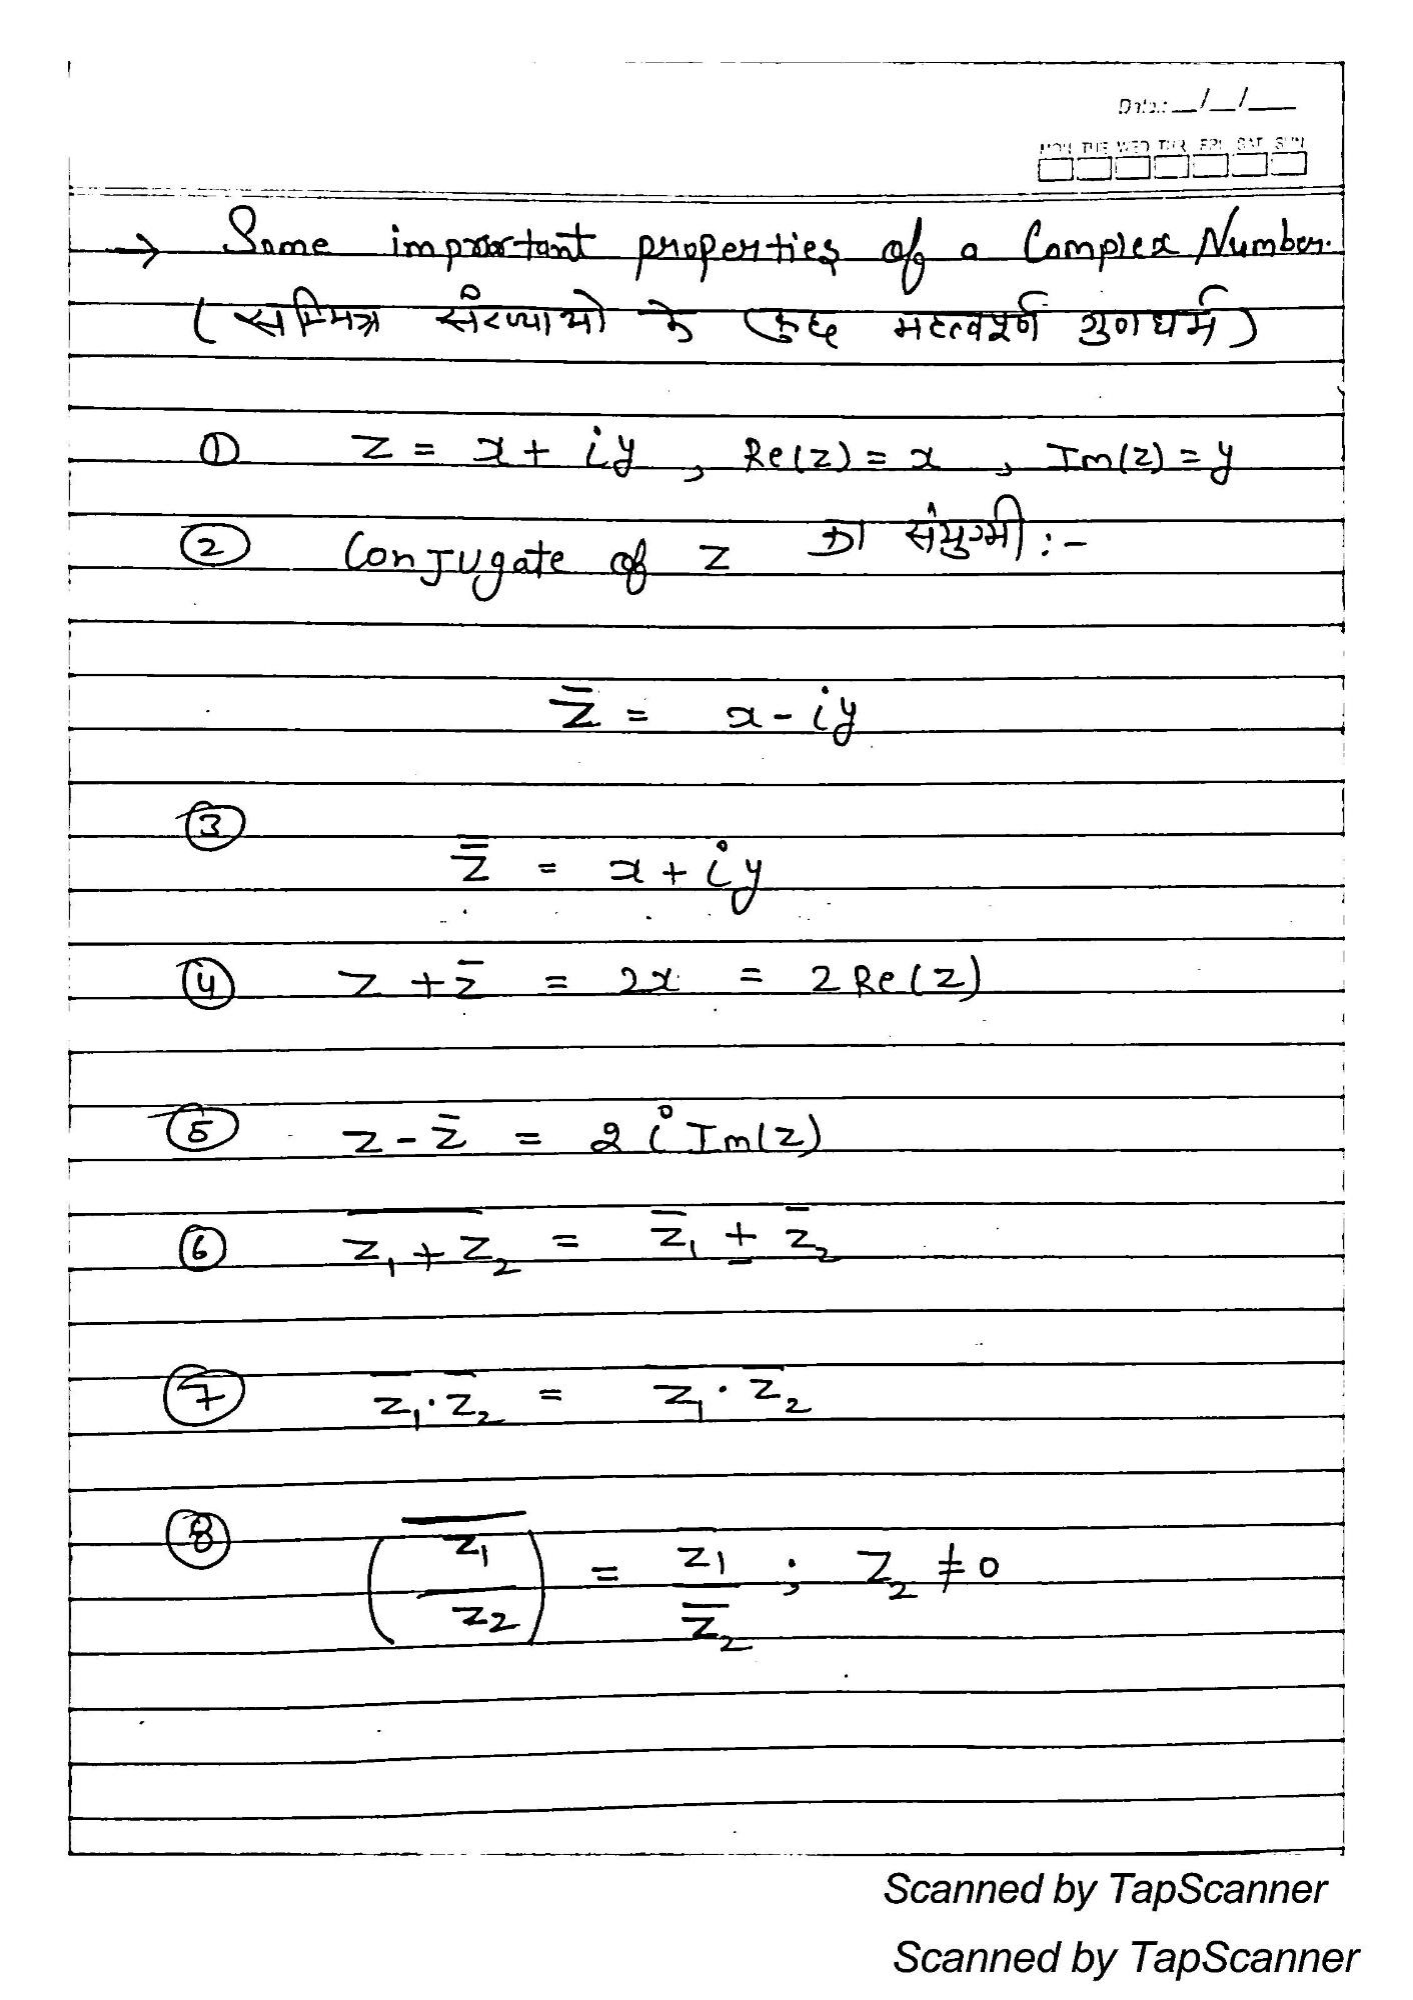 Date: __/__/___
MON TUE WED THR FRI SAT SUN
→ Some important properties of a Complex Number.
(सम्मिश्र संख्याओ के कुछ महत्वपूर्ण गुणधर्म)
① z = x + iy , Re(z) = x , Im(z) = y
② Conjugate of z का संयुग्मी :-
z̅ = x - iy
③
z̿ = x + iy
④ z + z̅ = 2x = 2 Re(z)
⑤ z - z̅ = 2 i Im(z)
⑥ \overline{z₁ + z₂} = z̅₁ + z̅₂
⑦ z̅₁ · z̅₂ = z̅₁ · z̅₂
⑧ (\overline{z₁/z₂}) = z̅₁/z̅₂ ; z₂ ≠ 0
Scanned by TapScanner
Scanned by TapScanner